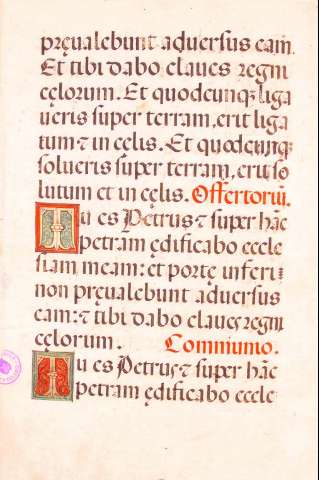 pręualebunt aduersus eam.
Et tibi dabo claues regni
cęlorum. Et quodcunq; liga
ueris super terram, erit liga
tum ⁊ in cęlis. Et quodcunq;
solueris super terram, erit so
lutum et in cęlis. Offertoriū.
Tu es Petrus ⁊ super hāc
petram ędificabo eccle
siam meam: et portę inferi
non pręualebunt aduersus
eam: ⁊ tibi dabo claues regni
cęlorum. Communio.
Tu es Petrus ⁊ super hāc
petram ędificabo eccle